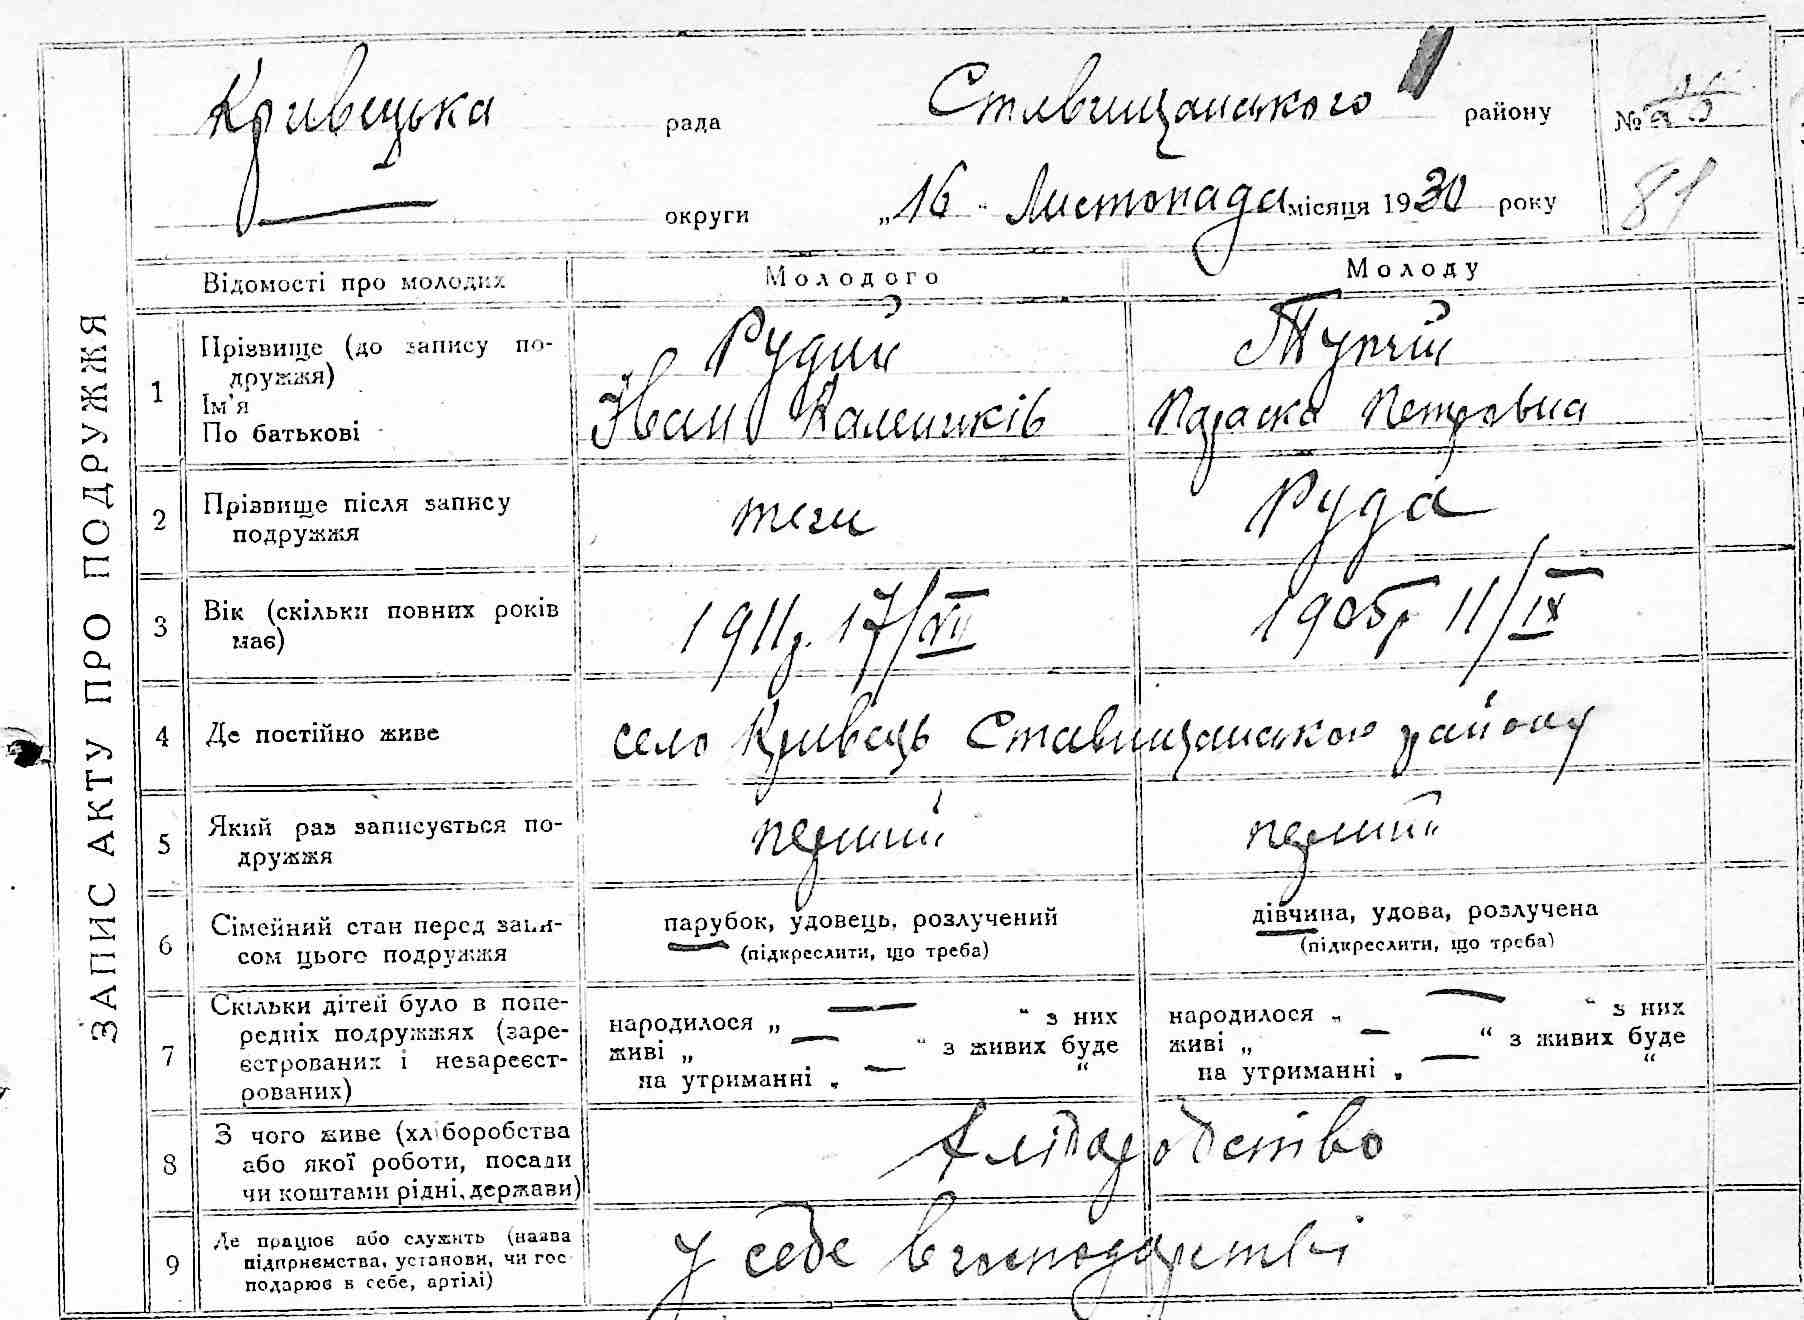 Кривецька рада Ставищанського району №
округи „16“ Листопада місяця 1930 року 81
ЗАПИС АКТУ ПРО ПОДРУЖЖЯ
Відомості про молодих Молодого Молоду
1 Прізвище (до запису по-
дружжя) Рудий
Ім'я
По батькові Іван Параска Петровна
2 Прізвище після запису
подружжя Руда
3 Вік (скільки повних років
має) 1911р. 17/VII 1905р 11/IX
4 Де постійно живе село Кривець Ставищанського району
5 Який раз записується по-
дружжя перший перший
6 Сімейний стан перед запи-
сом цього подружжя
парубок, удовець, розлучений
(підкреслити, що треба)
дівчина, удова, розлучена
(підкреслити, що треба)
7 Скільки дітей було в попе-
редніх подружжях (заре-
єстрованих і незареєст-
рованих)
народилося „ — “ з них
живі „ — “ з живих буде
на утриманні „ — “
народилося „ — “ з них
живі „ — “ з живих буде
на утриманні „ — “
8 З чого живе (хліборобства
або якої роботи, посади
чи коштами рідні, держави)
хліборобство
9 Де працює або служить (назва
підприємства, установи, чи гос-
подарює в себе, артілі)
у себе в господарстві